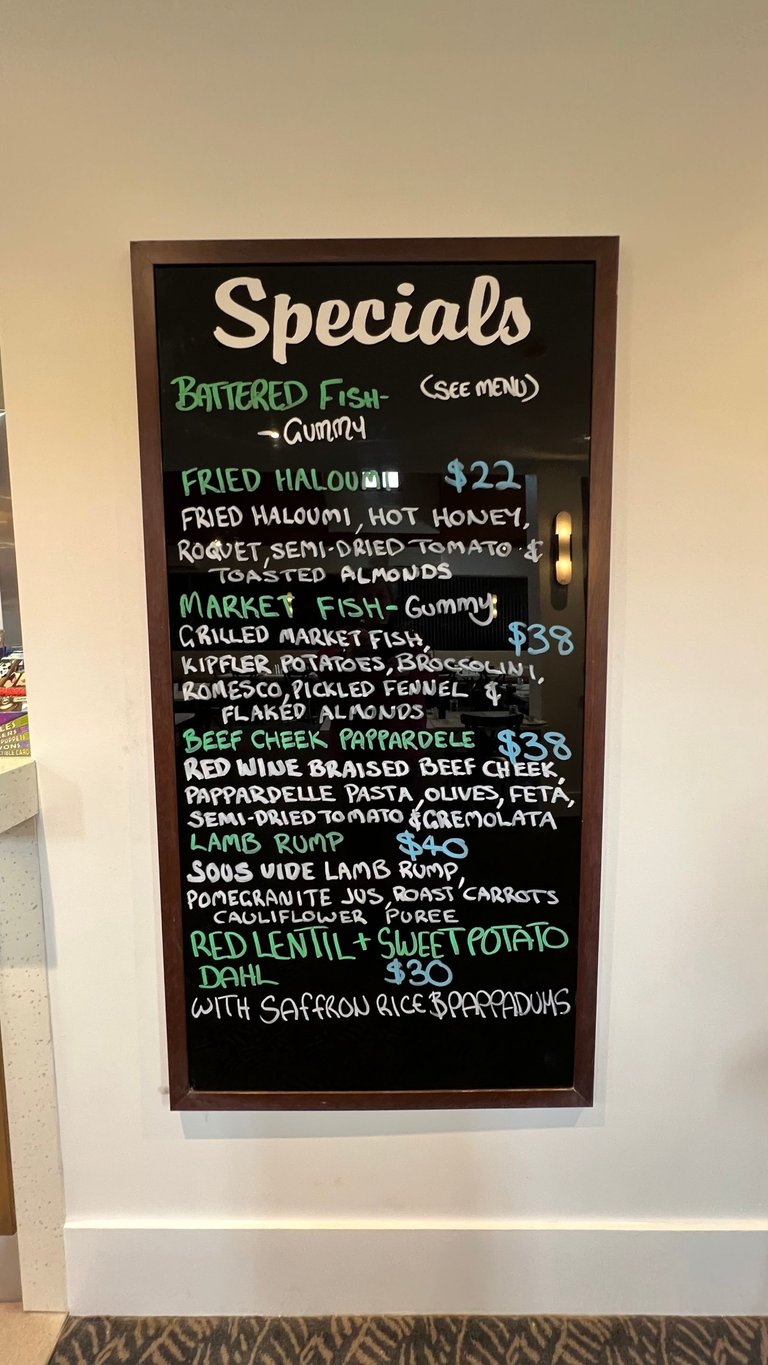 Specials
BATTERED FISH- (SEE MENU)
- GUMMY
FRIED HALOUMI $22
FRIED HALOUMI, HOT HONEY,
ROQUET, SEMI-DRIED TOMATO &
TOASTED ALMONDS
MARKET FISH- GUMMY
GRILLED MARKET FISH, $38
KIPFLER POTATOES, BROCCOLINI,
ROMESCO, PICKLED FENNEL &
FLAKED ALMONDS
BEEF CHEEK PAPPARDELE $38
RED WINE BRAISED BEEF CHEEK,
PAPPARDELLE PASTA, OLIVES, FETA,
SEMI-DRIED TOMATO & GREMOLATA
LAMB RUMP $40
SOUS VIDE LAMB RUMP,
POMEGRANITE JUS, ROAST CARROTS
CAULIFLOWER PUREE
RED LENTIL + SWEET POTATO
DAHL $30
WITH SAFFRON RICE & PAPPADUMS